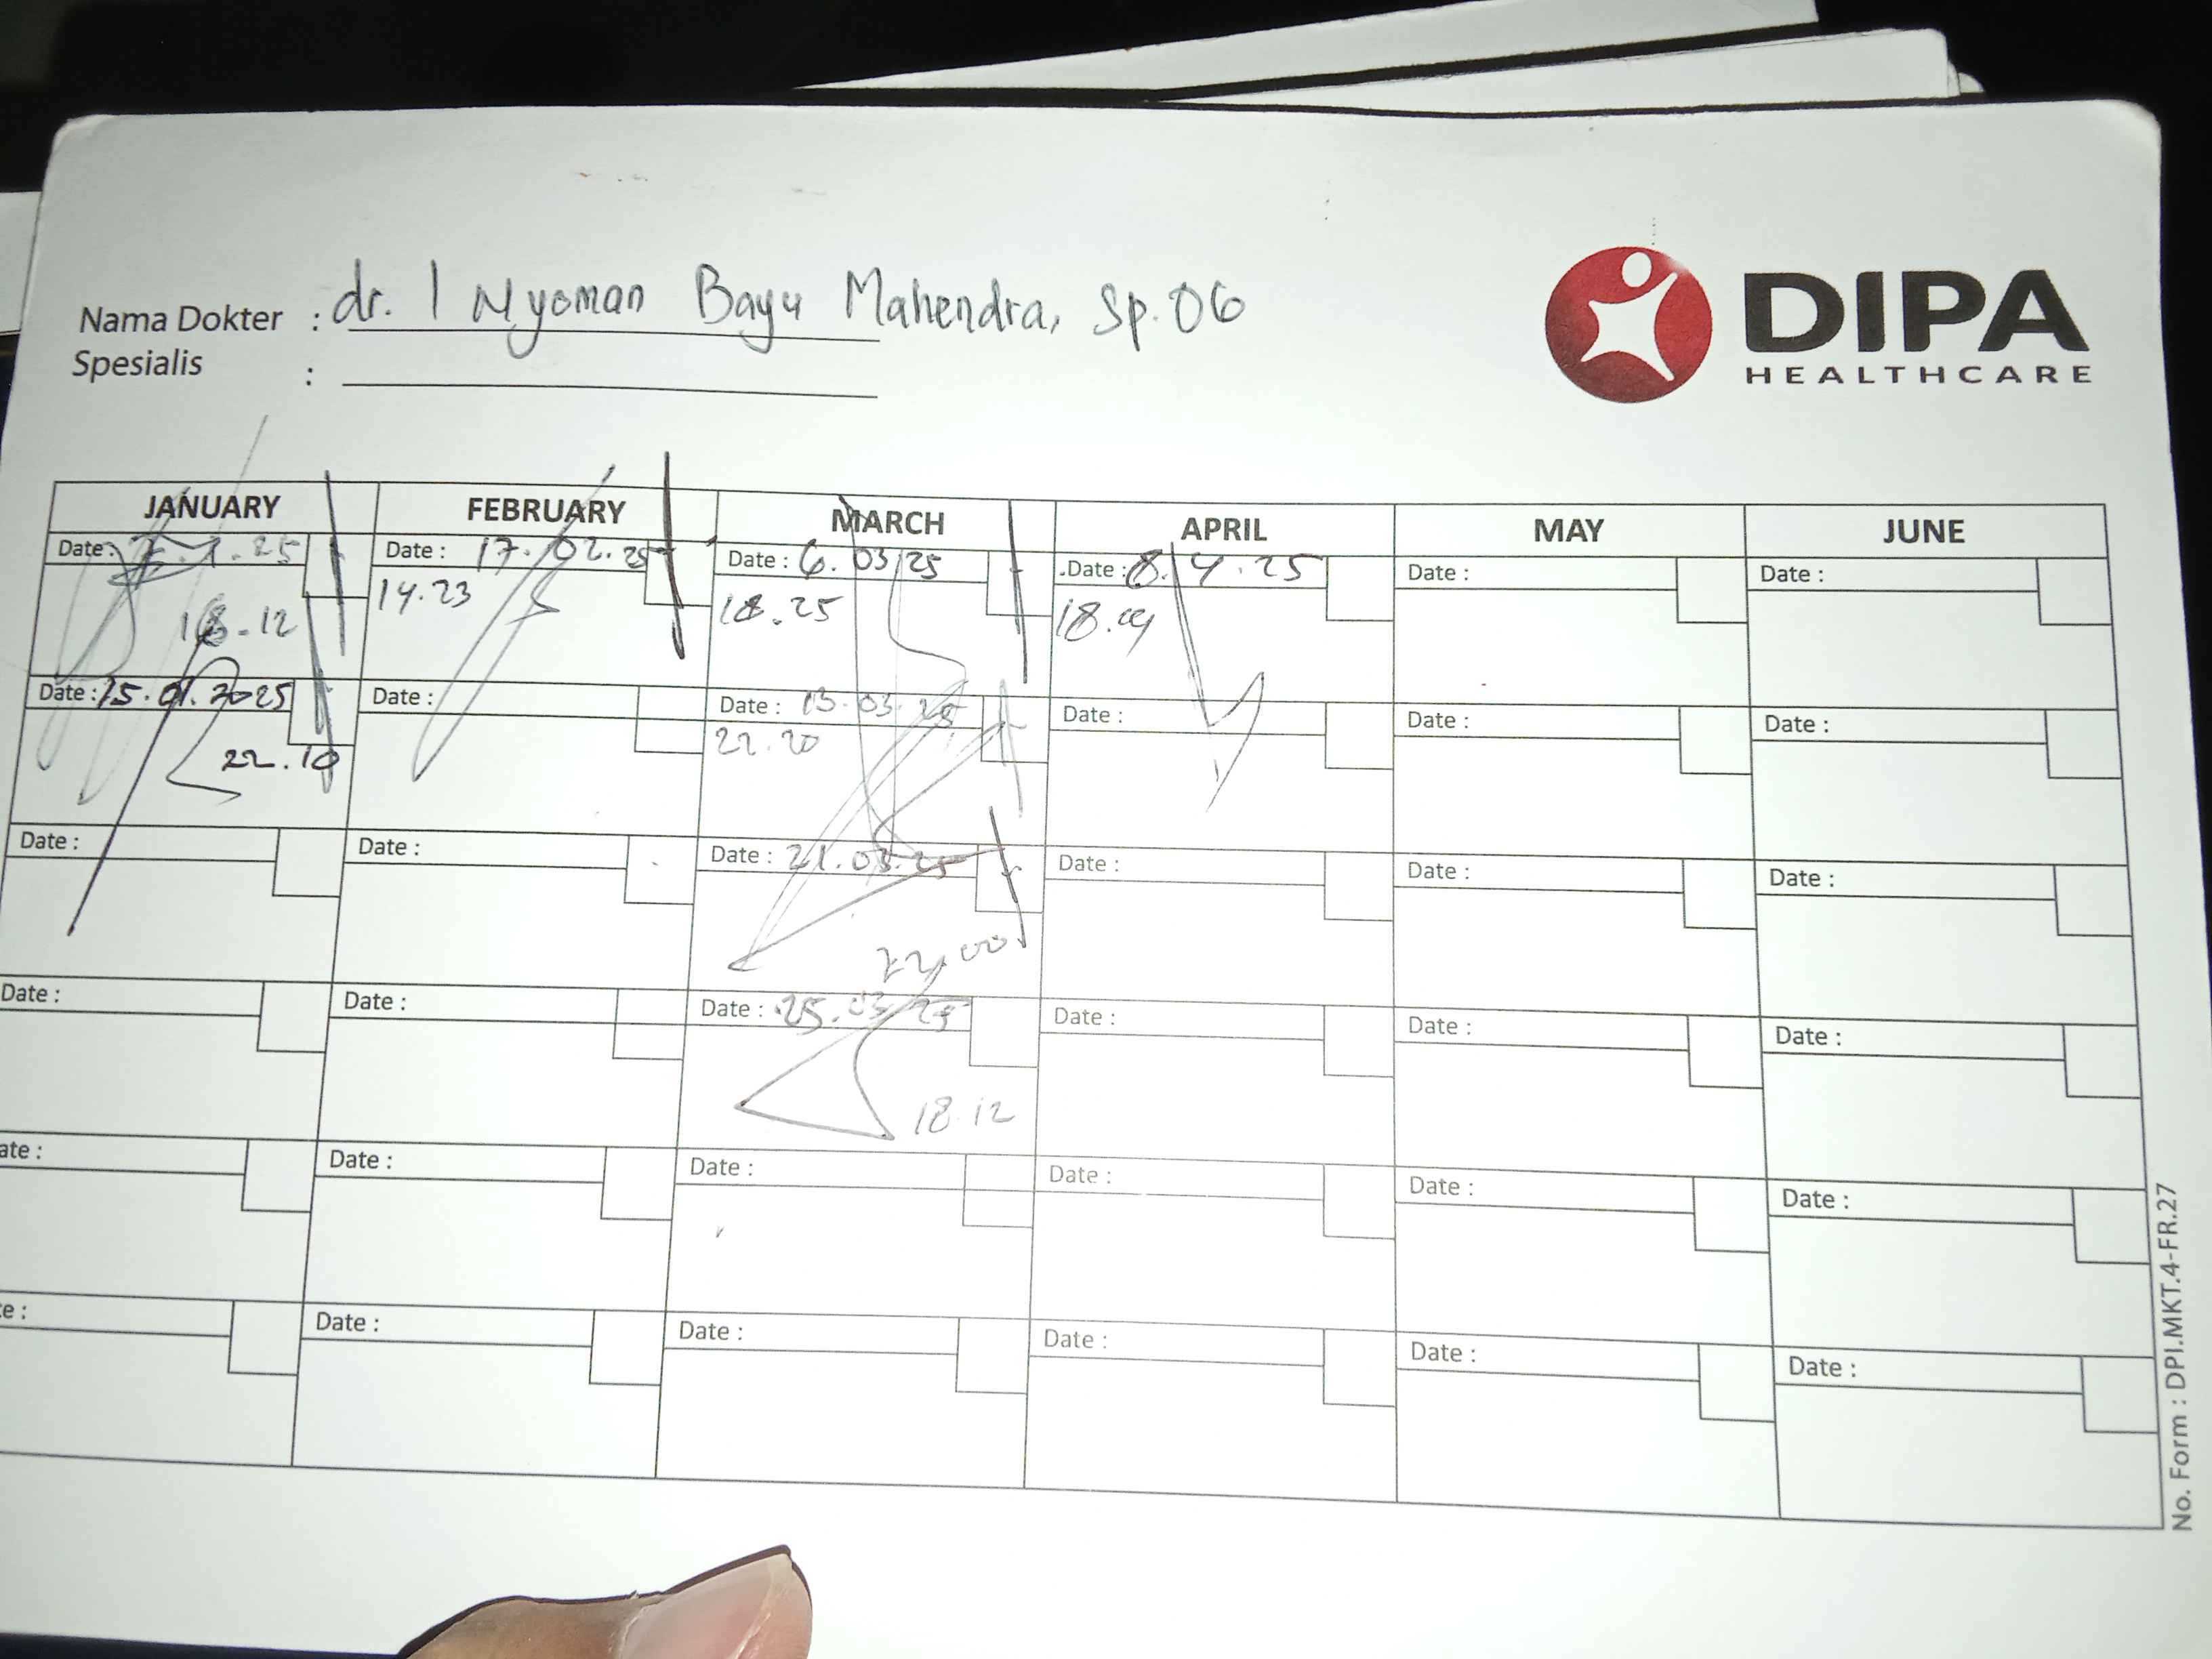 Nama Dokter : dr. I Nyoman Bayu Mahendra, Sp.OG
Spesialis :
DIPA
HEALTHCARE
JANUARY FEBRUARY MARCH APRIL MAY JUNE
Date : .1.25 Date : 17.02.25 Date : 6.03.25 Date : 8.4.25 Date : Date :
18.12 14.23 18.25 18.09
Date : 15.01.2025 Date : Date : 13.03.25 Date : Date : Date :
22.10 22.20
Date : Date : Date : 21.03.25 Date : Date : Date :
22.00
Date : Date : Date : 25.03.25 Date : Date : Date :
18.12
ate : Date : Date : Date : Date : Date :
e : Date : Date : Date : Date : Date :
No. Form : DPI.MKT.4-FR.27